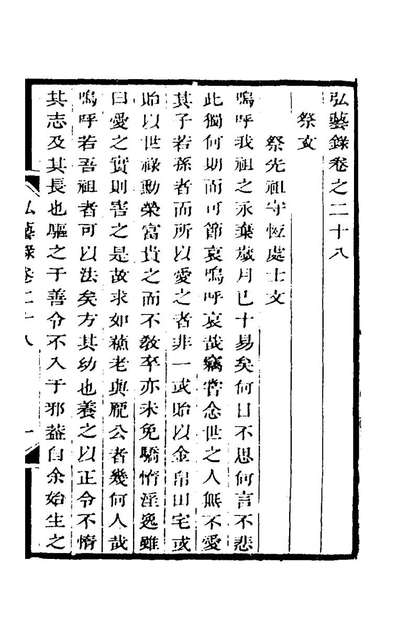 弘藝錄卷之二十八
祭文
祭先祖守恆處士文
嗚呼我祖之永棄歲月已十易矣何日不思何言不悲
此獨何期而可節哀嗚呼哀哉竊嘗念世之人無不愛
其子若孫者而所以愛之者非一或貽以金帛田宅或
貽以世祿勳榮富貴之而不教卒亦未免驕惰淫逸雖
曰愛之實則害之是故求如蘓老與龐公者幾何人哉
嗚呼若吾祖者可以法矣方其幼也養之以正令不惰
其志及其長也驅之于善令不入于邪葢自余始生之
弘藝錄卷二十八
一